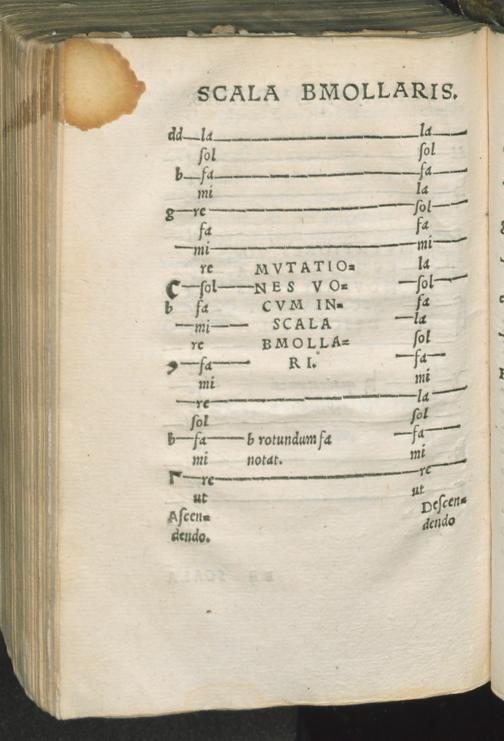 SCALA BMOLLARIS.
dd la la
sol sol
b fa fa
mi la
g re sol
fa fa
mi mi
re MVTATIO= la
C sol NES VO= sol
b fa CVM IN= fa
mi SCALA la
re BMOLLA= sol
fa RI. fa
mi mi
re la
sol sol
b fa b rotundum fa fa
mi notat. mi
Γ re re
ut ut
Ascen= Descen=
dendo. dendo